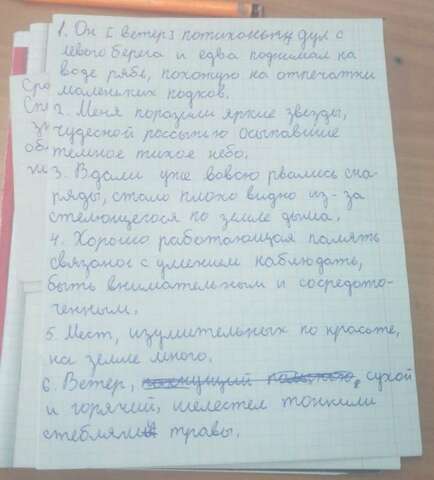 1. Он [ветер] потихоньку дул с
левого берега и едва поднимал на
воде рябь, похожую на отпечатки
маленьких подков.
2. Меня поразили яркие звезды,
чудесной россыпью осыпавшие
темное тихое небо.
3. Вдали уже вовсю рвались сна-
ряды, стало плохо видно из-за
стелющегося по земле дыма.
4. Хорошо работающая память
связаное с умением наблюдать,
быть внимательным и сосредото-
ченным.
5. Мест, изумительных по красоте,
на земле много.
6. Ветер, сухой
и горячий, шелестел тонкими
стеблями травы.
Сро